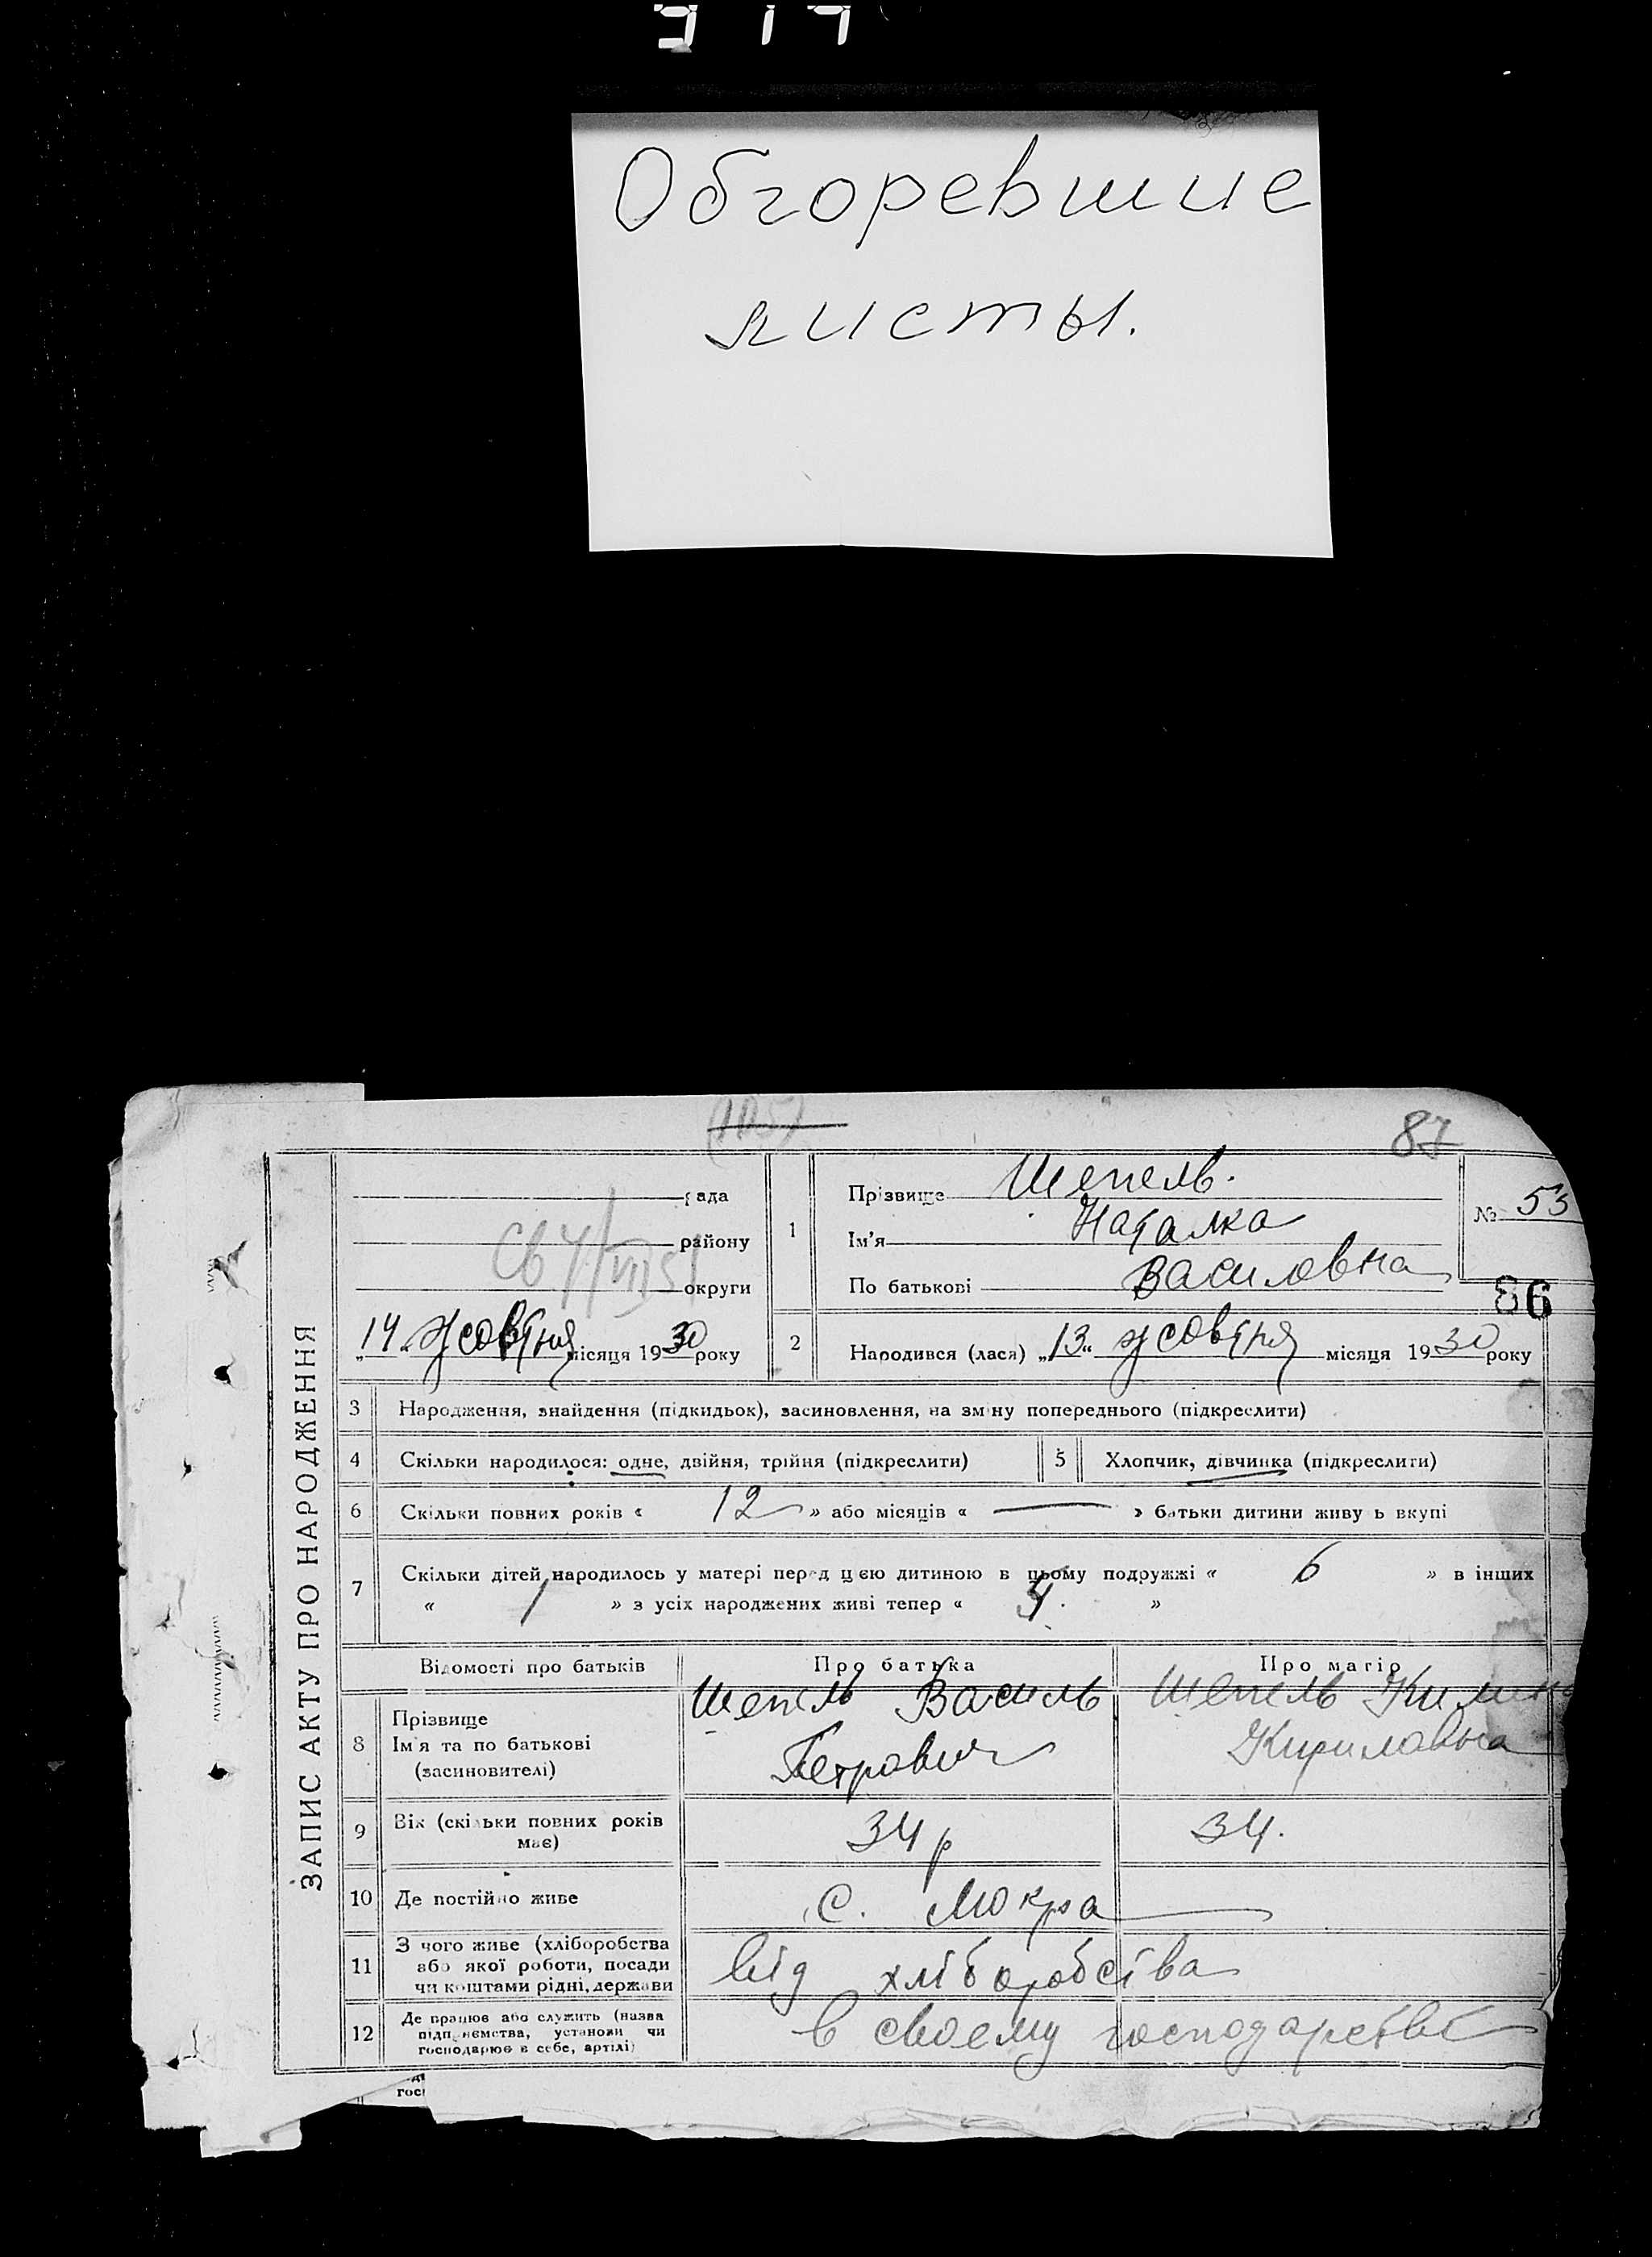 Обгоревшие
листы.
87
ЗАПИС АКТУ ПРО НАРОДЖЕННЯ
рада
району
округи
„14“ жовтня місяця 1930 року
1
Прізвище Шепель.
Ім'я Наталка
По батькові Василовна
№ 53
86
2
Народився (лася) „13“ жовтня місяця 1930 року
3 Народження, знайдення (підкидьок), засиновлення, на зміну попереднього (підкреслити)
4 Скільки народилося: одне, двійня, трійня (підкреслити)
5 Хлопчик, дівчинка (підкреслити)
6 Скільки повних років « 12 » або місяців « — » батьки дитини живуть вкупі
7 Скільки дітей народилось у матері перед цією дитиною в цьому подружжі « 6 » в інших
« 1 » з усіх народжених живі тепер « »
Відомості про батьків Про батька Про матір
8 Прізвище
Ім'я та по батькові
(засиновителі)
Шепель Василь
Петрович
Шепель Килина
Кириловна
9 Вік (скільки повних років
має)
34 р
34.
10 Де постійно живе
с. Мокра
11 З чого живе (хліборобства
або якої роботи, посади
чи коштами рідні, держави
від хліборобства
12 Де працює або служить (назва
підприємства, установи чи
господарює в себе, артілі)
в своему господарстві
гос